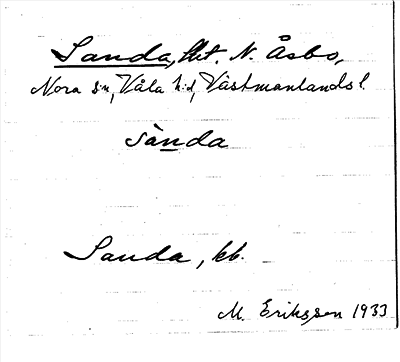 Sanda, lht. N. Åsbo,
Nora sn, Våla hd, Västmanlands l.
sànda
Sanda, kb.
M. Eriksson 1933